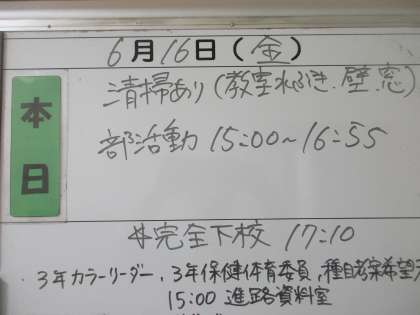 6月16日(金)
本日
清掃あり(教室水ぶき.壁.窓)
部活動 15:00~16:55
完全下校 17:10
・3年カラーリーダー、3年保健体育委員、種目
15:00 進路資料室